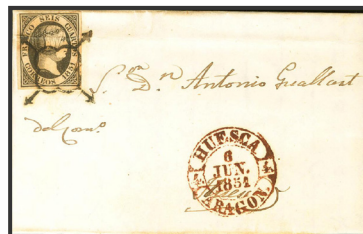 FRANCO SEIS CUARTOS
CORREOS 1851
S. D.n Antonio Guallart
del Com.o
HUESCA
6
JUN.
1851
ARAGON.